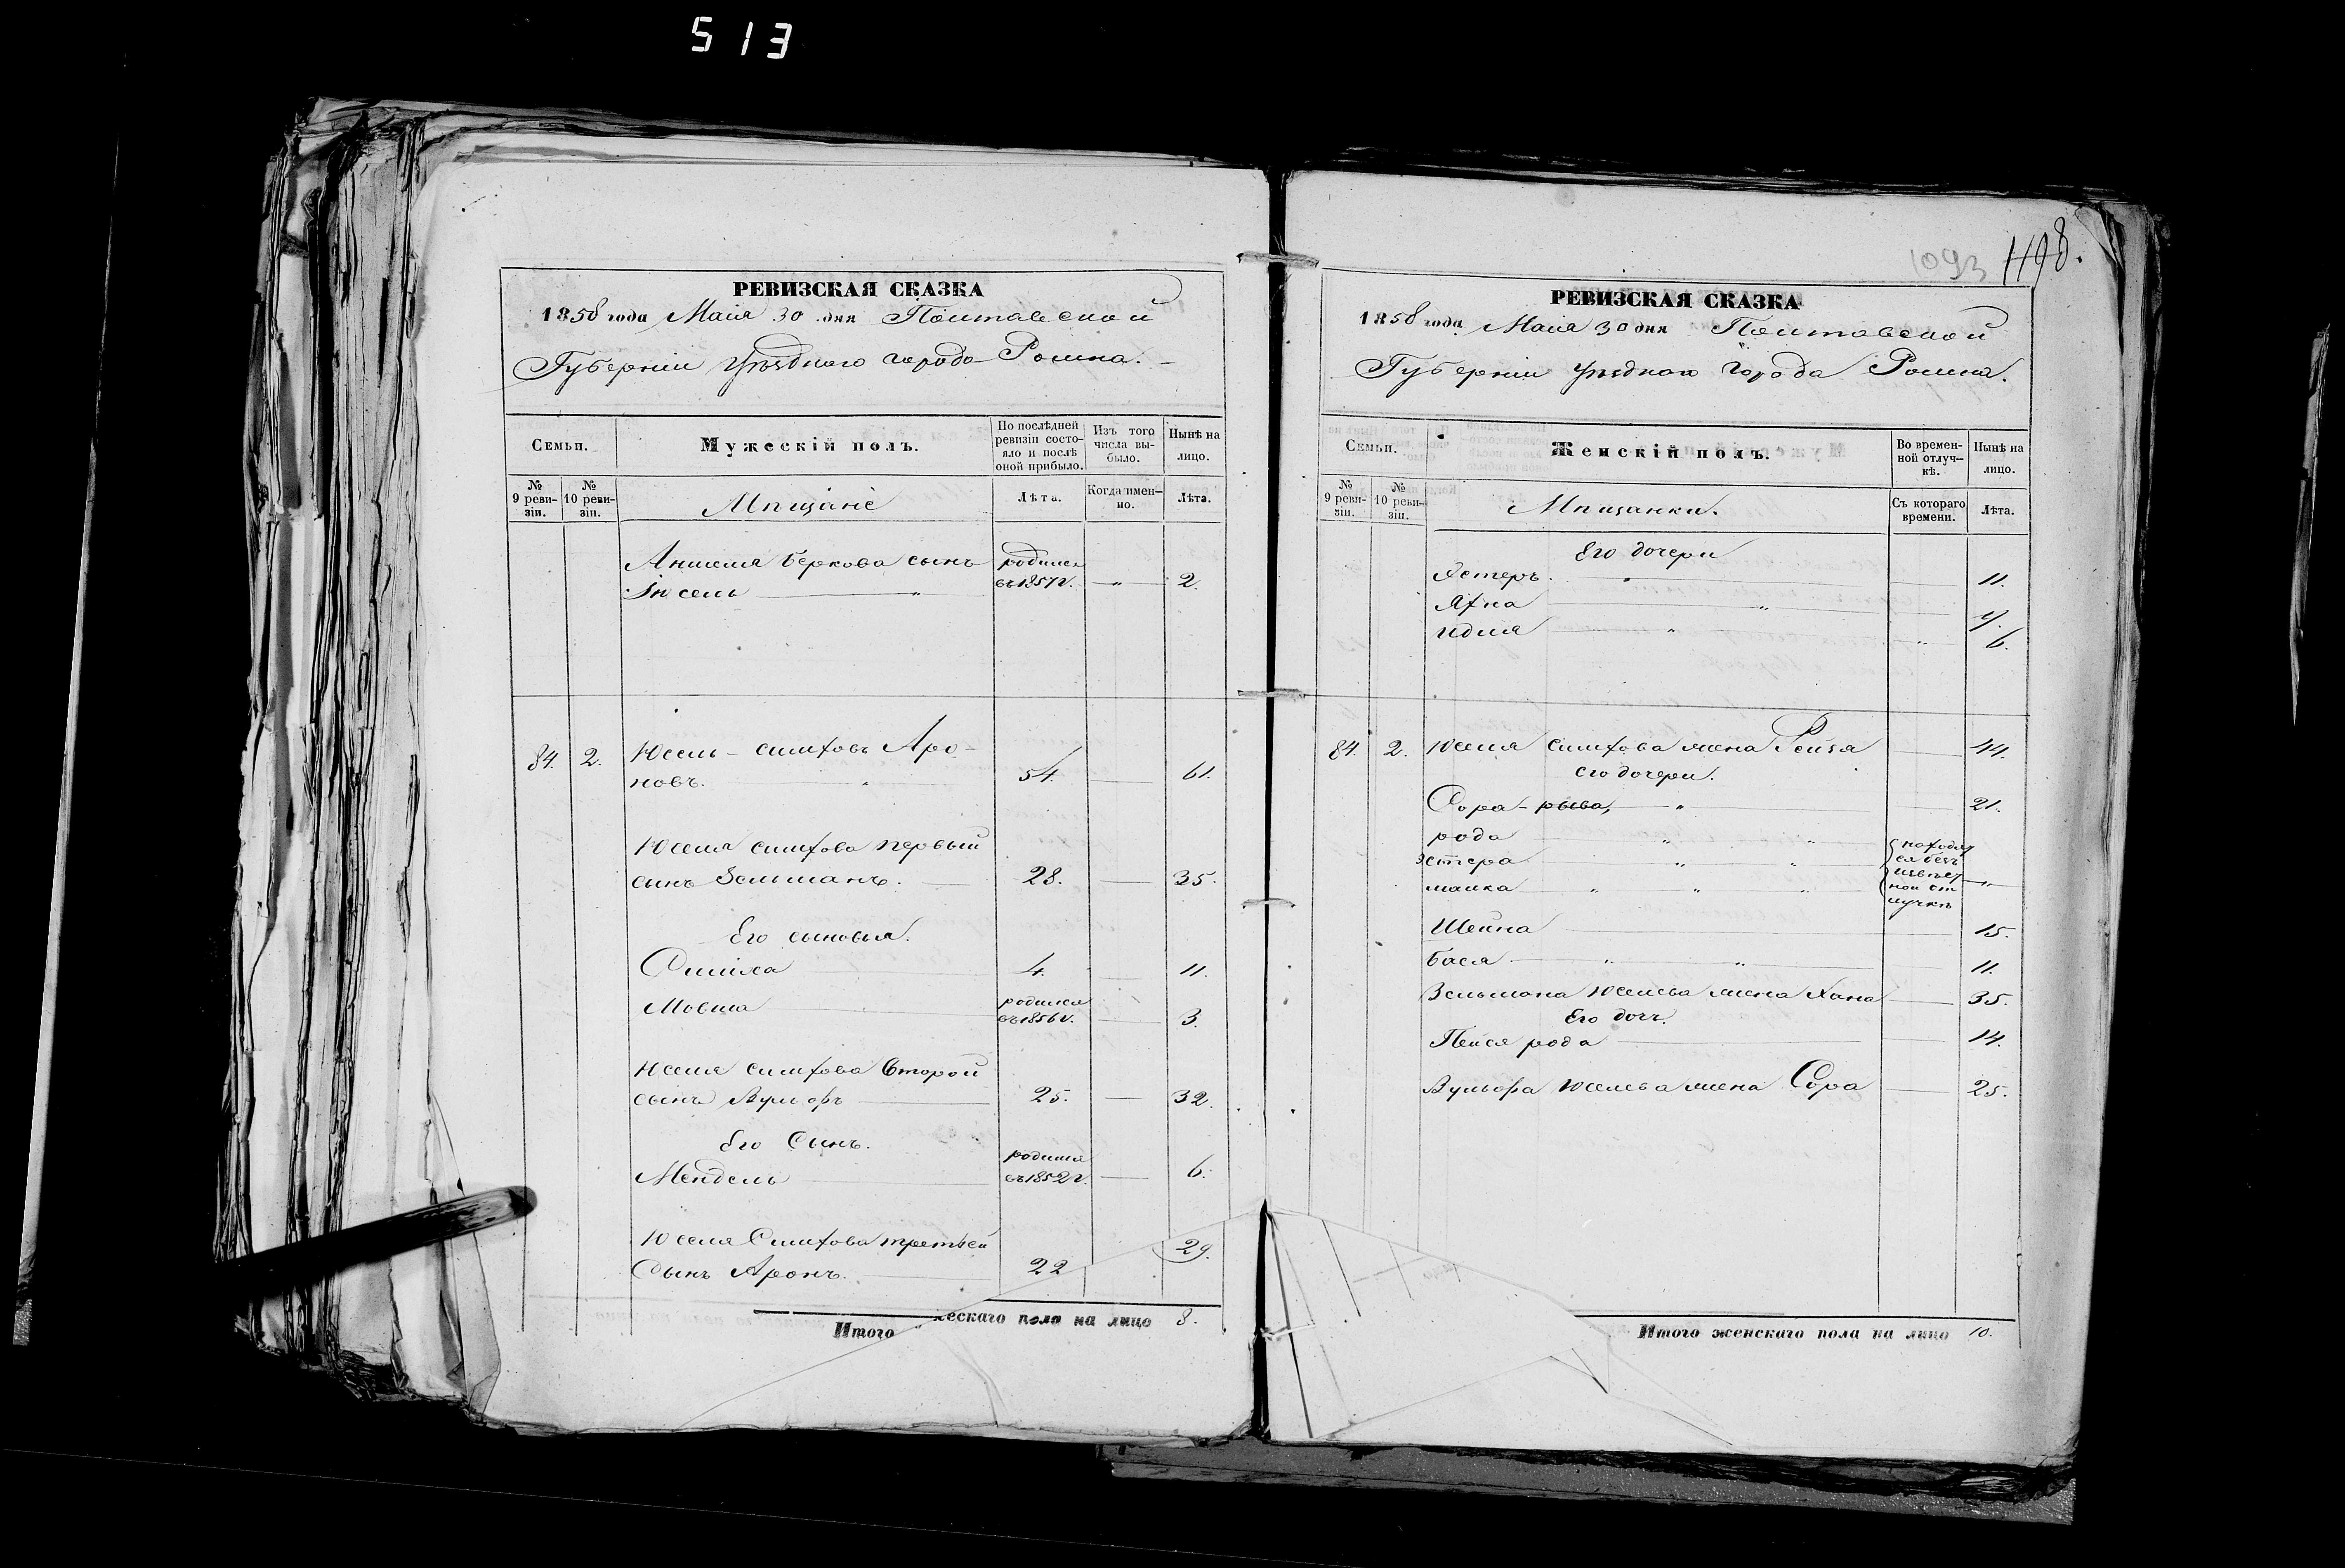 513
РЕВИЗСКАЯ СКАЗКА
1858 года Маія 30 дня Полтавской
Губерніи уѣзднаго города Ромна.
Семьи.
Мужескій полъ.
По послѣдней ревизіи состояло и послѣ оной прибыло.
Изъ того числа выбыло.
Нынѣ на лицо.
№ 9 ревизіи.
№ 10 ревизіи.
Мѣщане
Лѣта.
Когда именно.
Лѣта.
Аншеля Беркова сынъ родился
Іосель " въ 1857 г. — " — 2.
84. 2. Юсель - симховъ Аро-
новъ. " 54. — 61.
Юселя симхова первый
сынъ Зельманъ. — 28. — 35.
Его сыновья.
Симха 4. — 11.
Мовша родился въ 1856 г. — 3.
Юселя симхова второй
сынъ Вульфъ — 25. — 32.
Его Сынъ.
Мендель родился въ 1852 г. — 6.
Юселя Симхова третьей
Сынъ Аронъ. — 22 29.
Итого жескаго пола на лицо 8.
1093 1198.
РЕВИЗСКАЯ СКАЗКА
1858 года Маія 30 дня Полтавской
Губерніи уѣзднаго Города Ромна.
Семьи.
Женскій полъ.
Во временной отлучкѣ.
Нынѣ на лицо.
№ 9 ревизіи.
№ 10 ревизіи.
Мѣщанки.
Съ котораго времени.
Лѣта.
Его дочери
Эстеръ. " — 11.
Яхна "
"
— 6.
84. 2. Юселя симхова жена Рейзя — 44.
его дочери.
Сора - рыва, — " — 21.
рода " "
эстера " "
малка " " "
находят
ся безъ
извѣст
ной от
лучкѣ
— " —
Шейна — 15.
Бася " " — 11.
Зельмана Юселева жена Хана — 35.
Его дочь.
Пейся рода — 14.
Вульфа Юселева жена Сора — 25.
Итого женскаго пола на лицо 10.